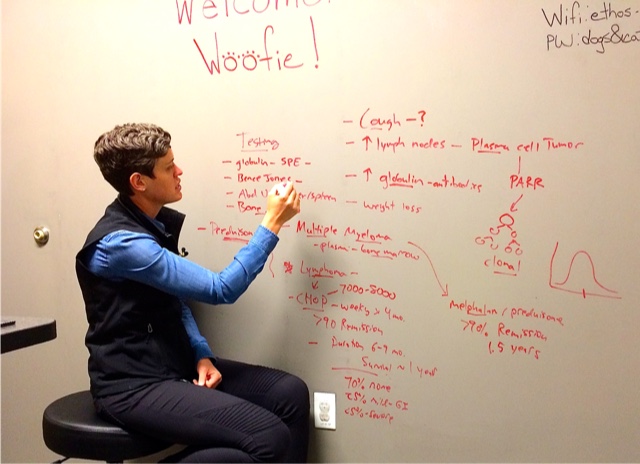 Welcome
Woofie!
Wifi: ethos-
PW: dogs&ca
- Cough - ?
- ↑ lymph nodes - Plasma cell Tumor
- ↑ globulin - antibodies
- weight loss
PARR
clonal
Testing
- globulin - SPE -
- Bence Jones -
- Abd
- Bone
- Prednisone
- Multiple Myeloma
- plasma - bone marrow
* Lymphoma -
- CHOP - 7000-8000
- weekly x 4 mo.
>90 Remission
- Duration 6-9 mo.
Survival ~ 1 year
70% none
25% mild - GI
<5% - Severe
Melphalan / prednisone
>90% Remission
1.5 years